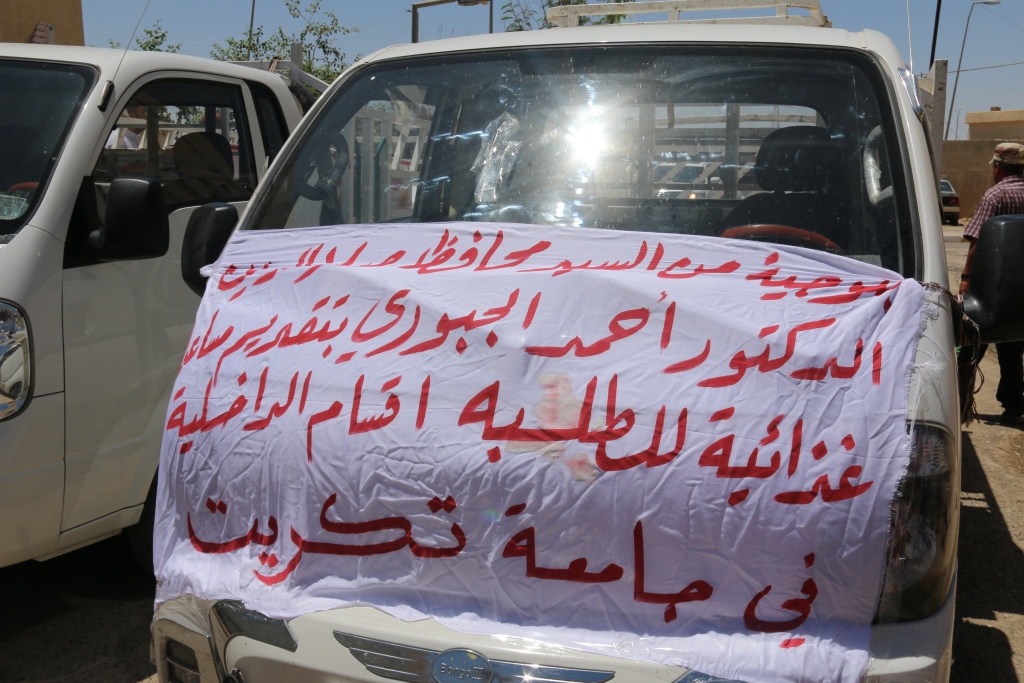 بتوجية من السيد محافظ صلاح الدين
الدكتور أحمد الجبوري بتقديم مساعد
غذائية للطلبه اقسام الداخلية
في جامعة تكريت
Bongo III